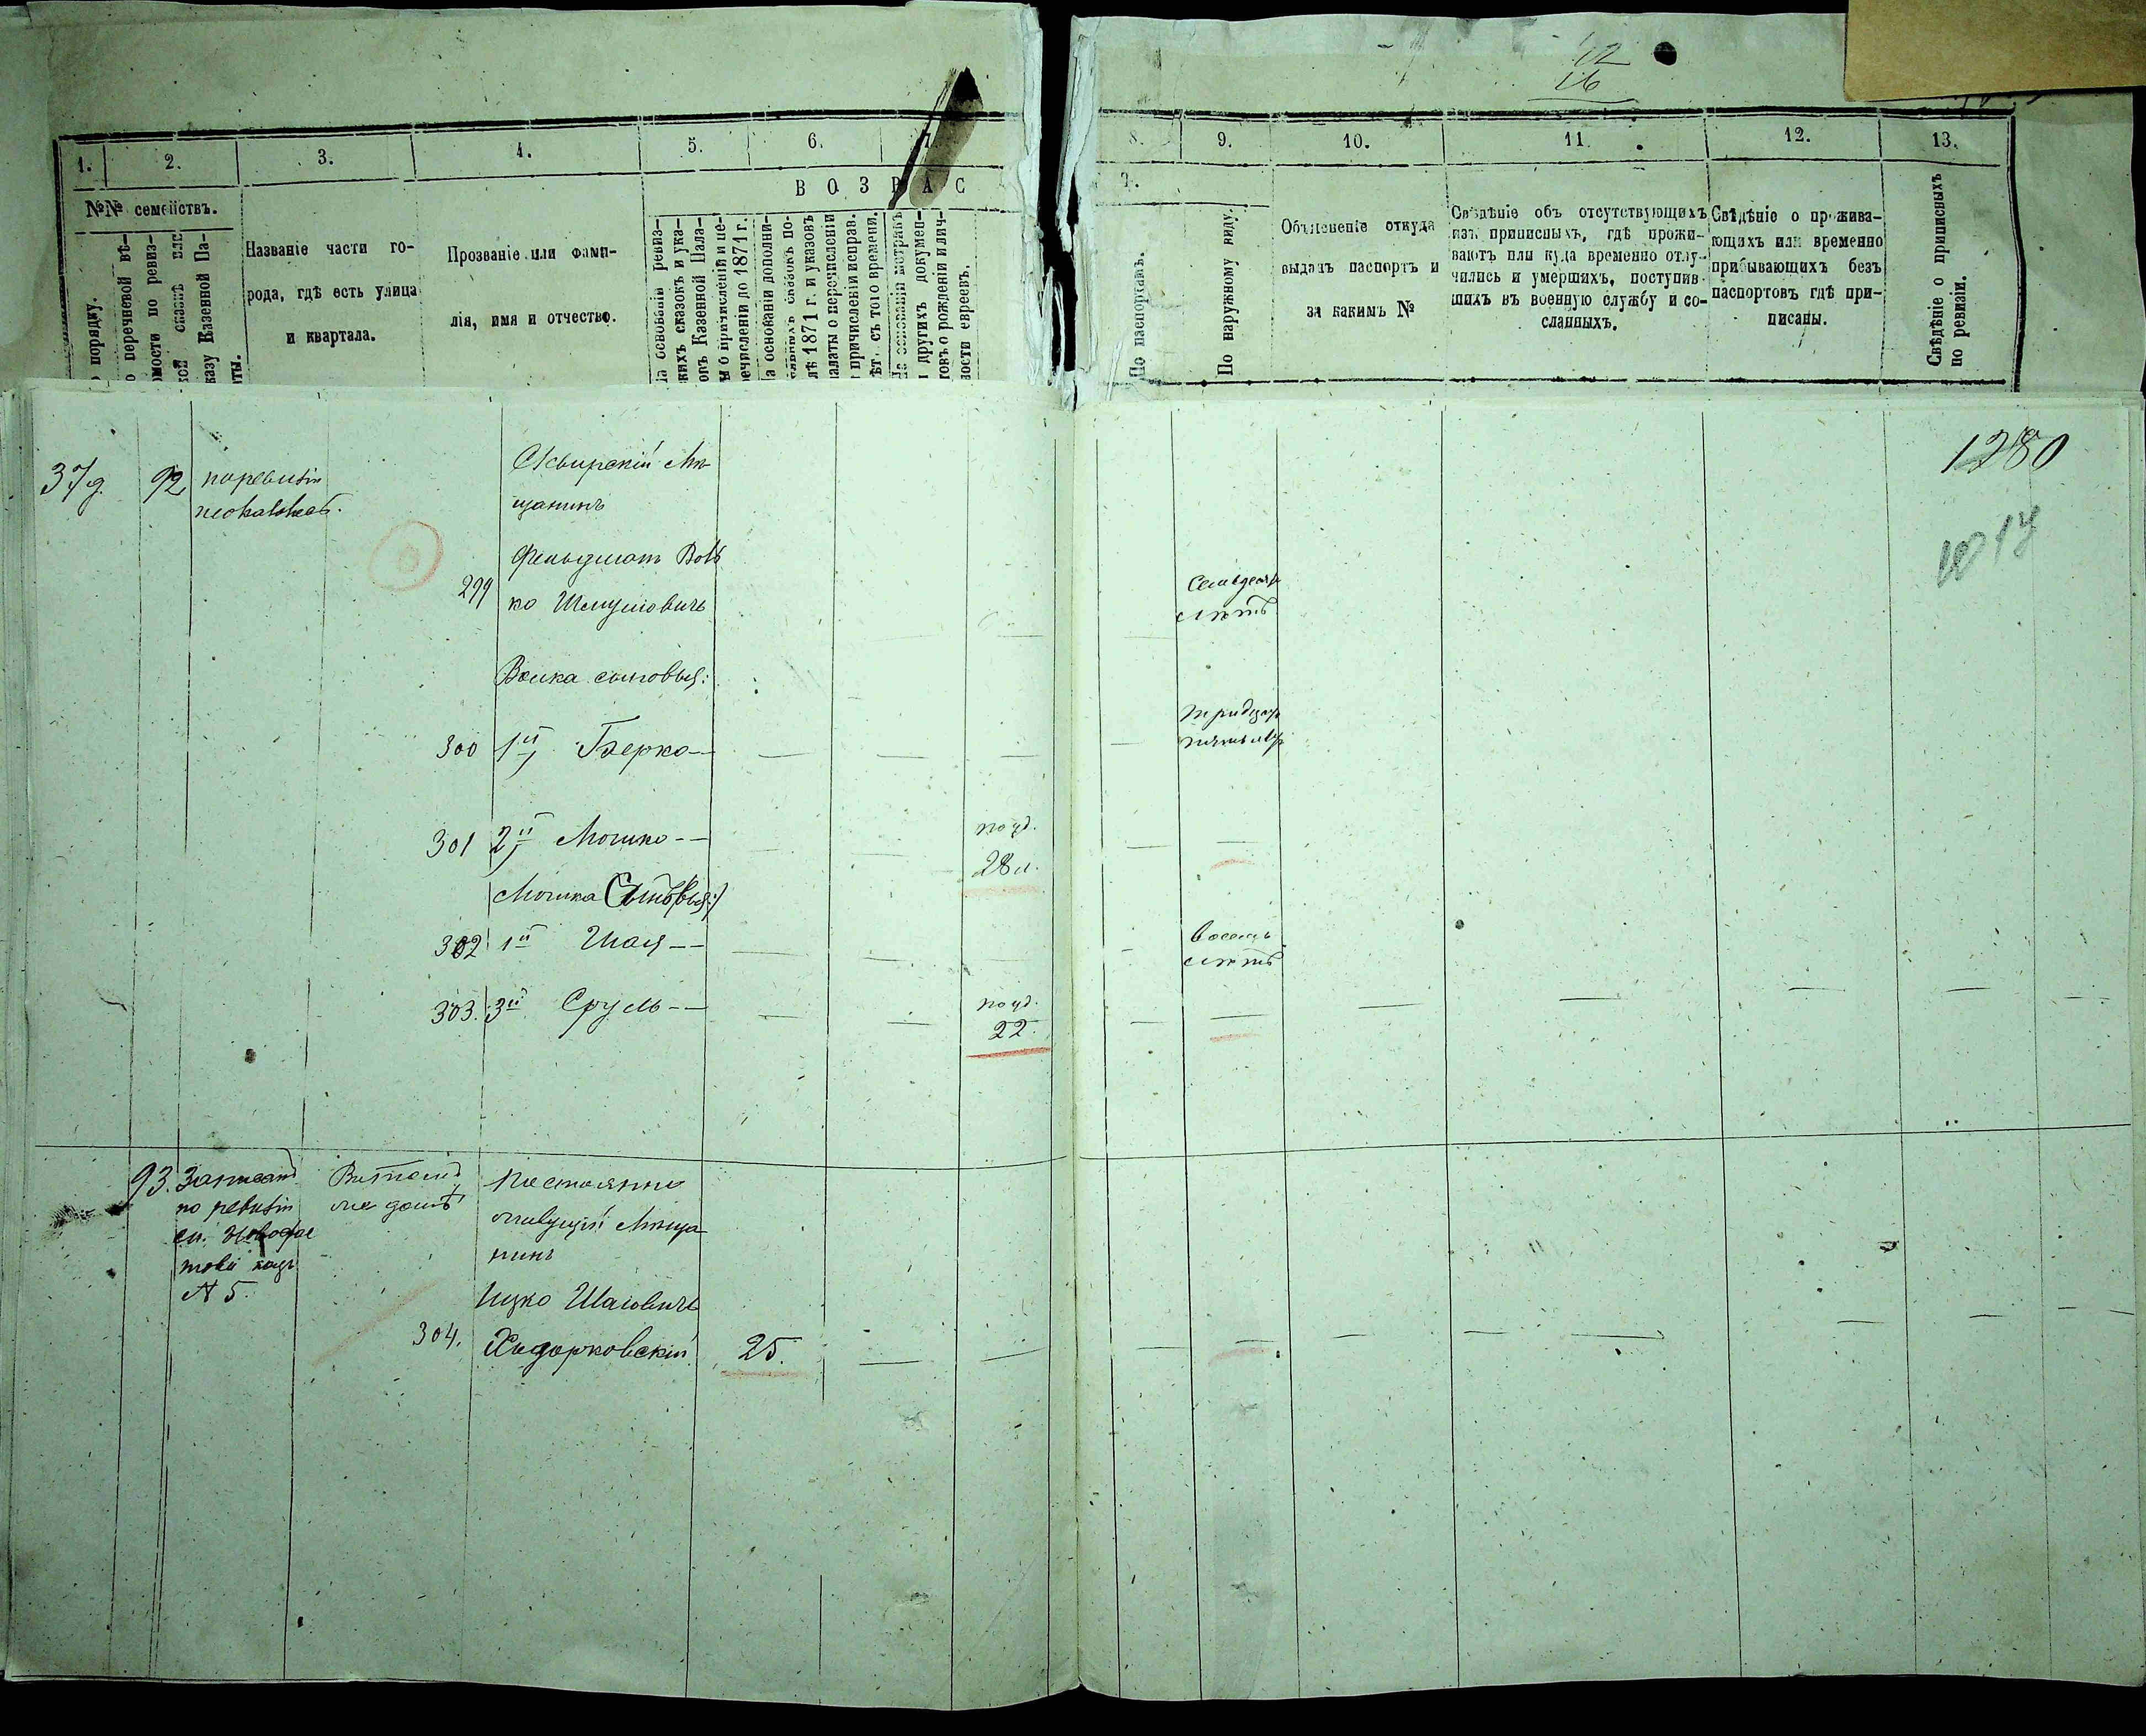 42
16
1. 2. 3. 4. 5. 6. 7
8. 9. 10. 11. 12. 13.
В О З Р А С
Т.
№№ семействъ.
о порядку.
о перечневой вѣ-
омости по ревиз-
кой сказкѣ или
казу Казенной Па-
аты.
Названіе части го-
рода, гдѣ есть улица
и квартала.
Прозваніе или фами-
лія, имя и отчество.
На основаніи ревиз-
скихъ сказокъ и ука-
зовъ Казенной Пала-
ы о причисленіи и пе-
речисленіи до 1871 г.
На основаніи дополни-
тельныхъ сказокъ по-
лѣ 1871 г. и указовъ
палаты о перечисленіи
и причисленіи исправ.
лѣт. съ того времени.
На основаніи метрикъ
и другихъ докумен-
товъ о рожденіи и лич-
ности евреевъ.
По паспортамъ.
По наружному виду.
Объясненіе откуда
выданъ паспортъ и
за какимъ №
Свѣдѣніе объ отсутствующихъ
изъ приписныхъ, гдѣ прожи-
ваютъ или куда временно отлу-
чились и умершихъ, поступив-
шихъ въ военную службу и со-
сланныхъ.
Свѣдѣніе о прожива-
ющихъ или временно
прибывающихъ безъ
паспортовъ гдѣ при-
писаны.
Свѣдѣніе о приписныхъ
по ревизіи.
1280
37 92 по ревизіи Сквирскій Мѣ-
щанинъ
299 Фельдманъ Воль
ко Шмулювичъ Семьдесятъ
лѣтъ
Волка сыновья:
300 1й Берко — тридцать
пять лѣтъ
301 2й Мошко — по уд.
28 л.
Мошка Сыновья:
302 1й Шая — восемь
лѣтъ
303. 3й Сруль — по уд.
22.
93. Записанъ
по ревизіи
№ 5.
домѣ
Постоянно
живущій Мѣща
нинъ
Ицко Шаювичъ
304. Ходорковскій 25.